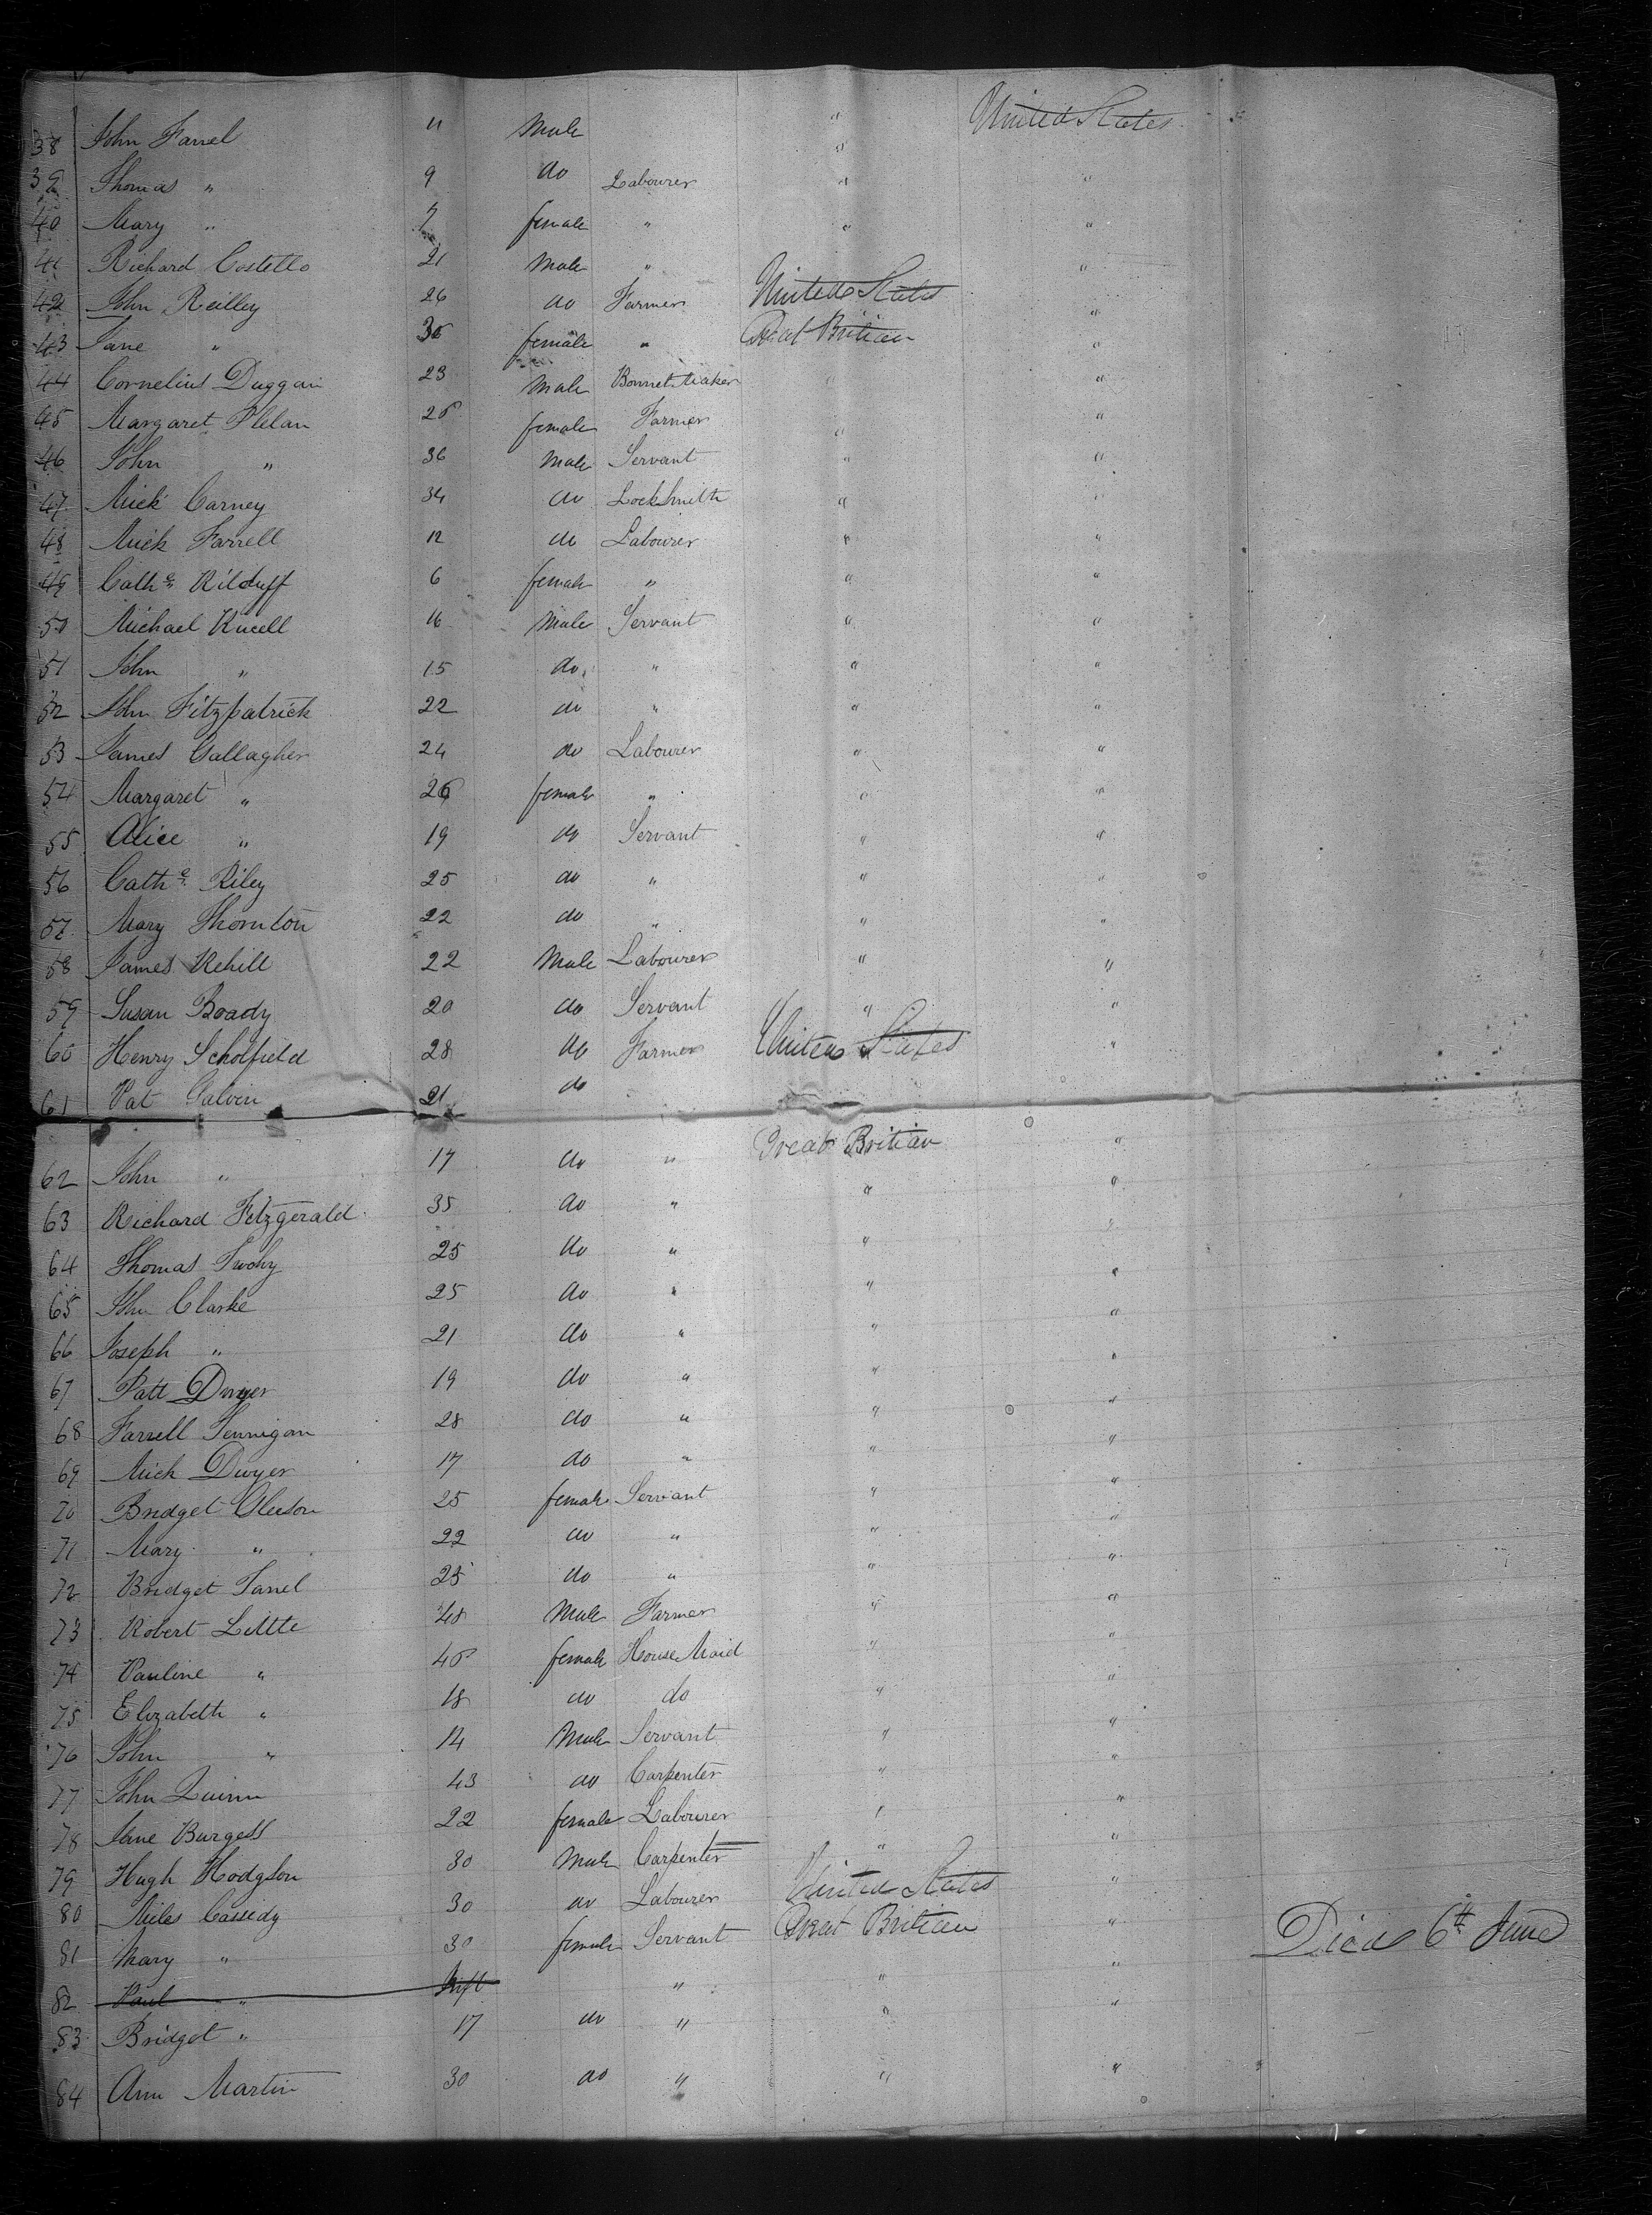 38 John Farrel 11 Male " United States
39 Thomas " 9 do Labourer " "
40 Mary " 7 female " " "
41 Richard Costello 21 Male " "
42 John Reilley 26 do Farmer United States "
43 Jane " 30 female " Great Britian "
44 Cornelius Duggan 23 Male Bonnet Maker " "
45 Margaret Phlan 25 female Farmer " "
46 John " 36 Male Servant " "
47 Mick Carney 34 do LockSmith " "
48 Mick Farrell 12 do Labourer " "
49 Cathe Kilduff 6 female " " "
50 Michael 16 Male Servant " "
51 John " 15 do " " "
52 John Fitzpatrick 22 do " " "
53 James Gallagher 24 do Labourer " "
54 Margaret " 26 female " " "
55 Alice " 19 do Servant " "
56 Cathe Riley 25 do " " "
57 Mary Thornton 22 do " " "
58 James Kehill 22 Male Labourer " "
59 Susan Boady 20 do Servant " "
60 Henry Scholfield 28 do Farmer United States "
61 Pat Galvin 21 do
62 John " 17 do " Great Britian "
63 Richard Fitzgerald 35 do " " "
64 Thomas Twohy 25 do " " "
65 John Clarke 25 do " " "
66 Joseph " 21 do " " "
67 Patt Dwyer 19 do " " "
68 Farrell Fennigan 28 do " " "
69 Mich Dwyer 17 do " " "
70 Bridget Gleeson 25 female Servant " "
71 Mary " 22 do " " "
72 Bridget 25 do " " "
73 Robert Little 48 Male Farmer " "
74 Pauline " 45 female House Maid " "
75 Elizabeth " 18 do do " "
76 John " 14 Male Servant " "
77 John Quinn 43 do Carpenter " "
78 Jane Burgess 22 female Labourer " "
79 Hugh Hodgson 30 Male Carpenter " "
80 Miles Cassedy 30 do Labourer United States "
81 Mary " 30 female Servant Great Britian " Died 6th June
82 Paul " Inft " " "
83 Bridget " 17 do " " "
84 Ann Martin 30 do " " "